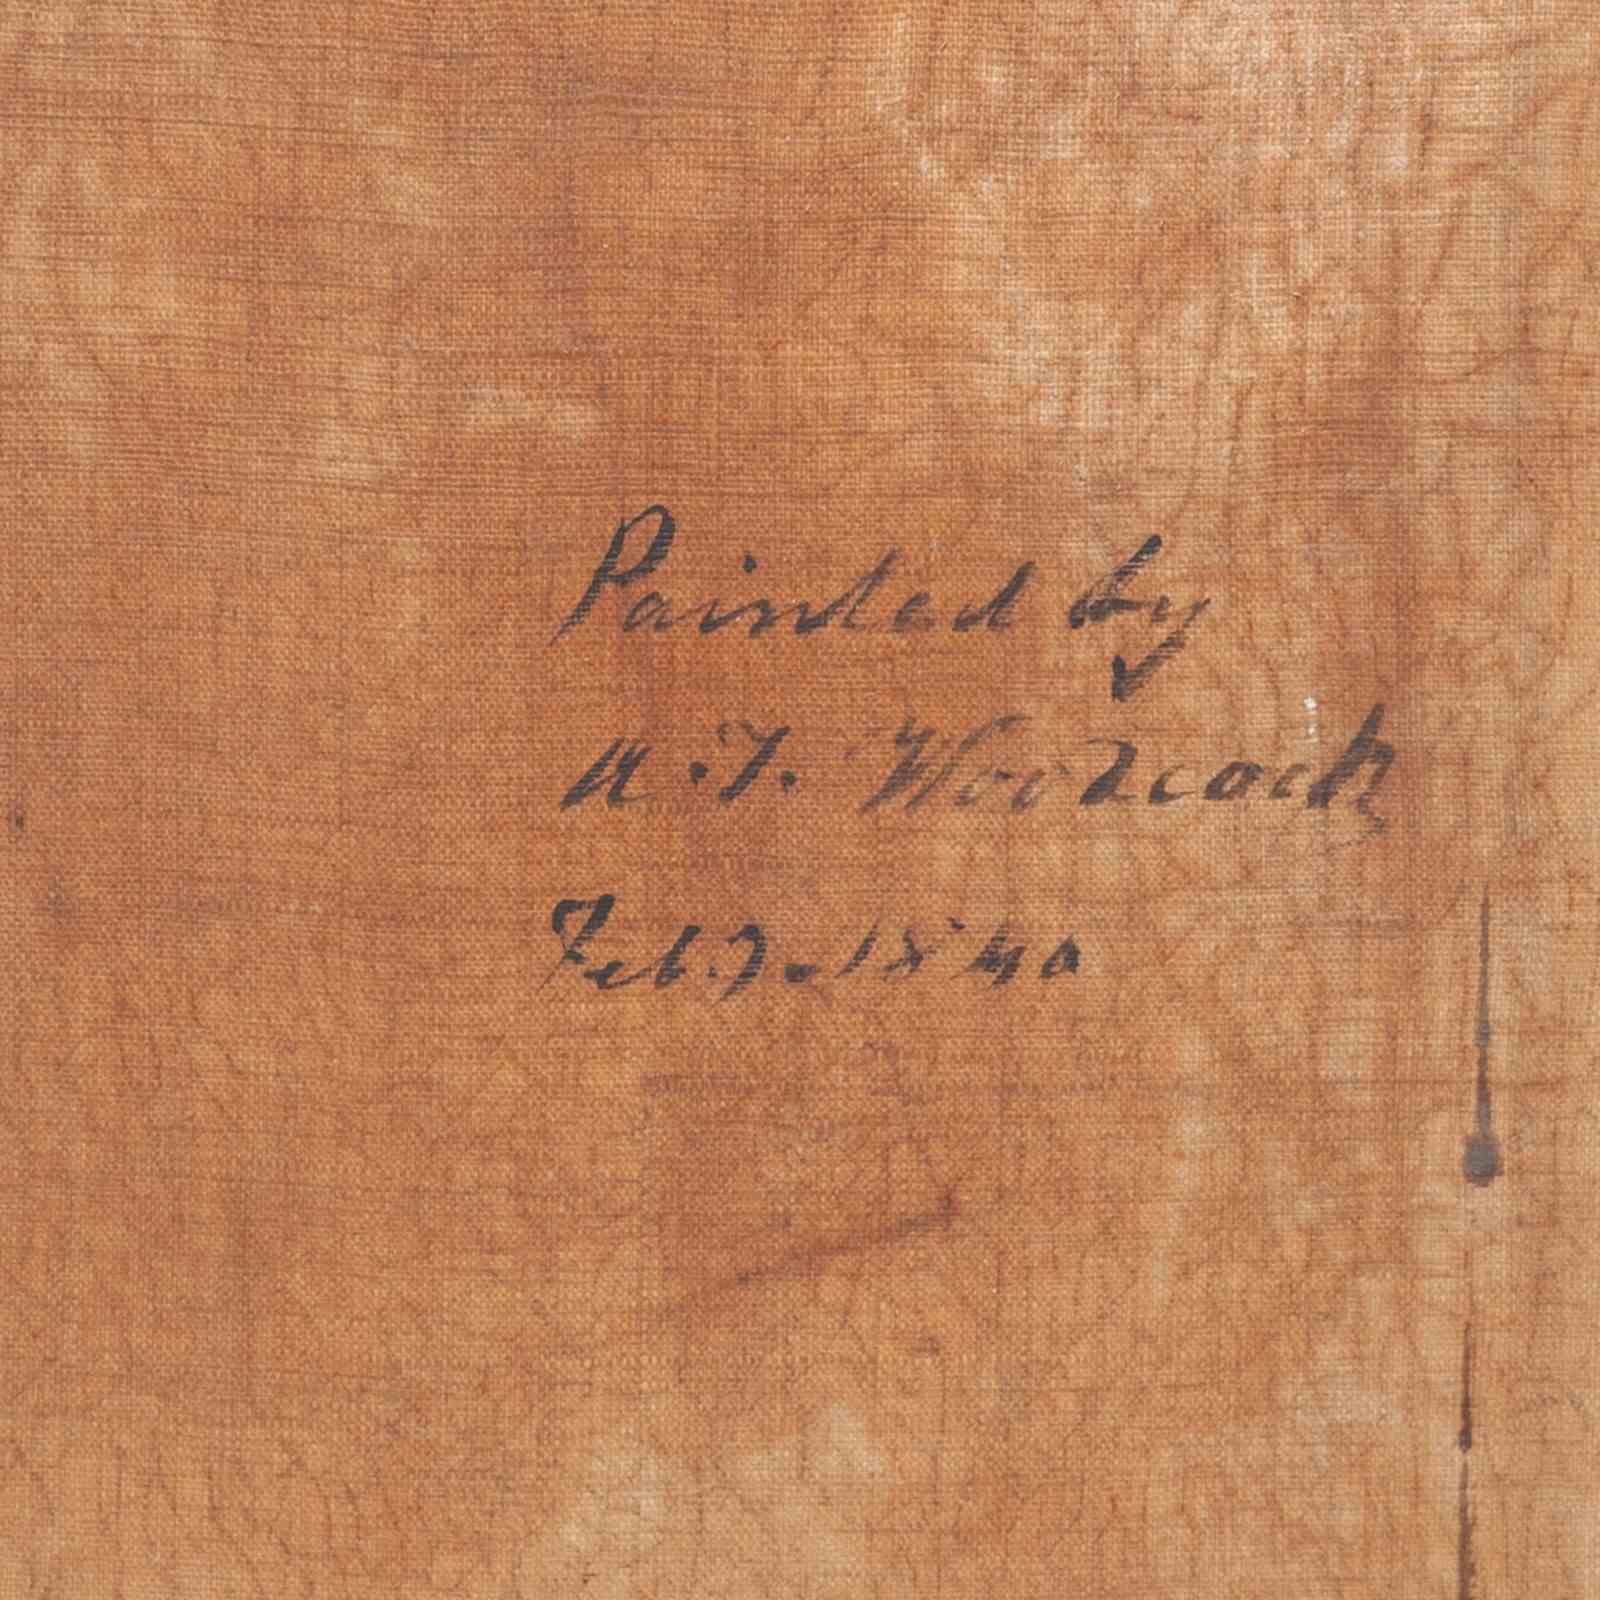 Painted by
A. T. Woodcock
Feb. 7. 1840